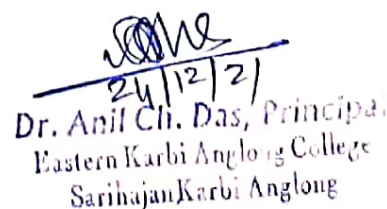 24/12/21
Dr. Anil Ch. Das, Principal
Eastern Karbi Anglong College
Sarihajan Karbi Anglong